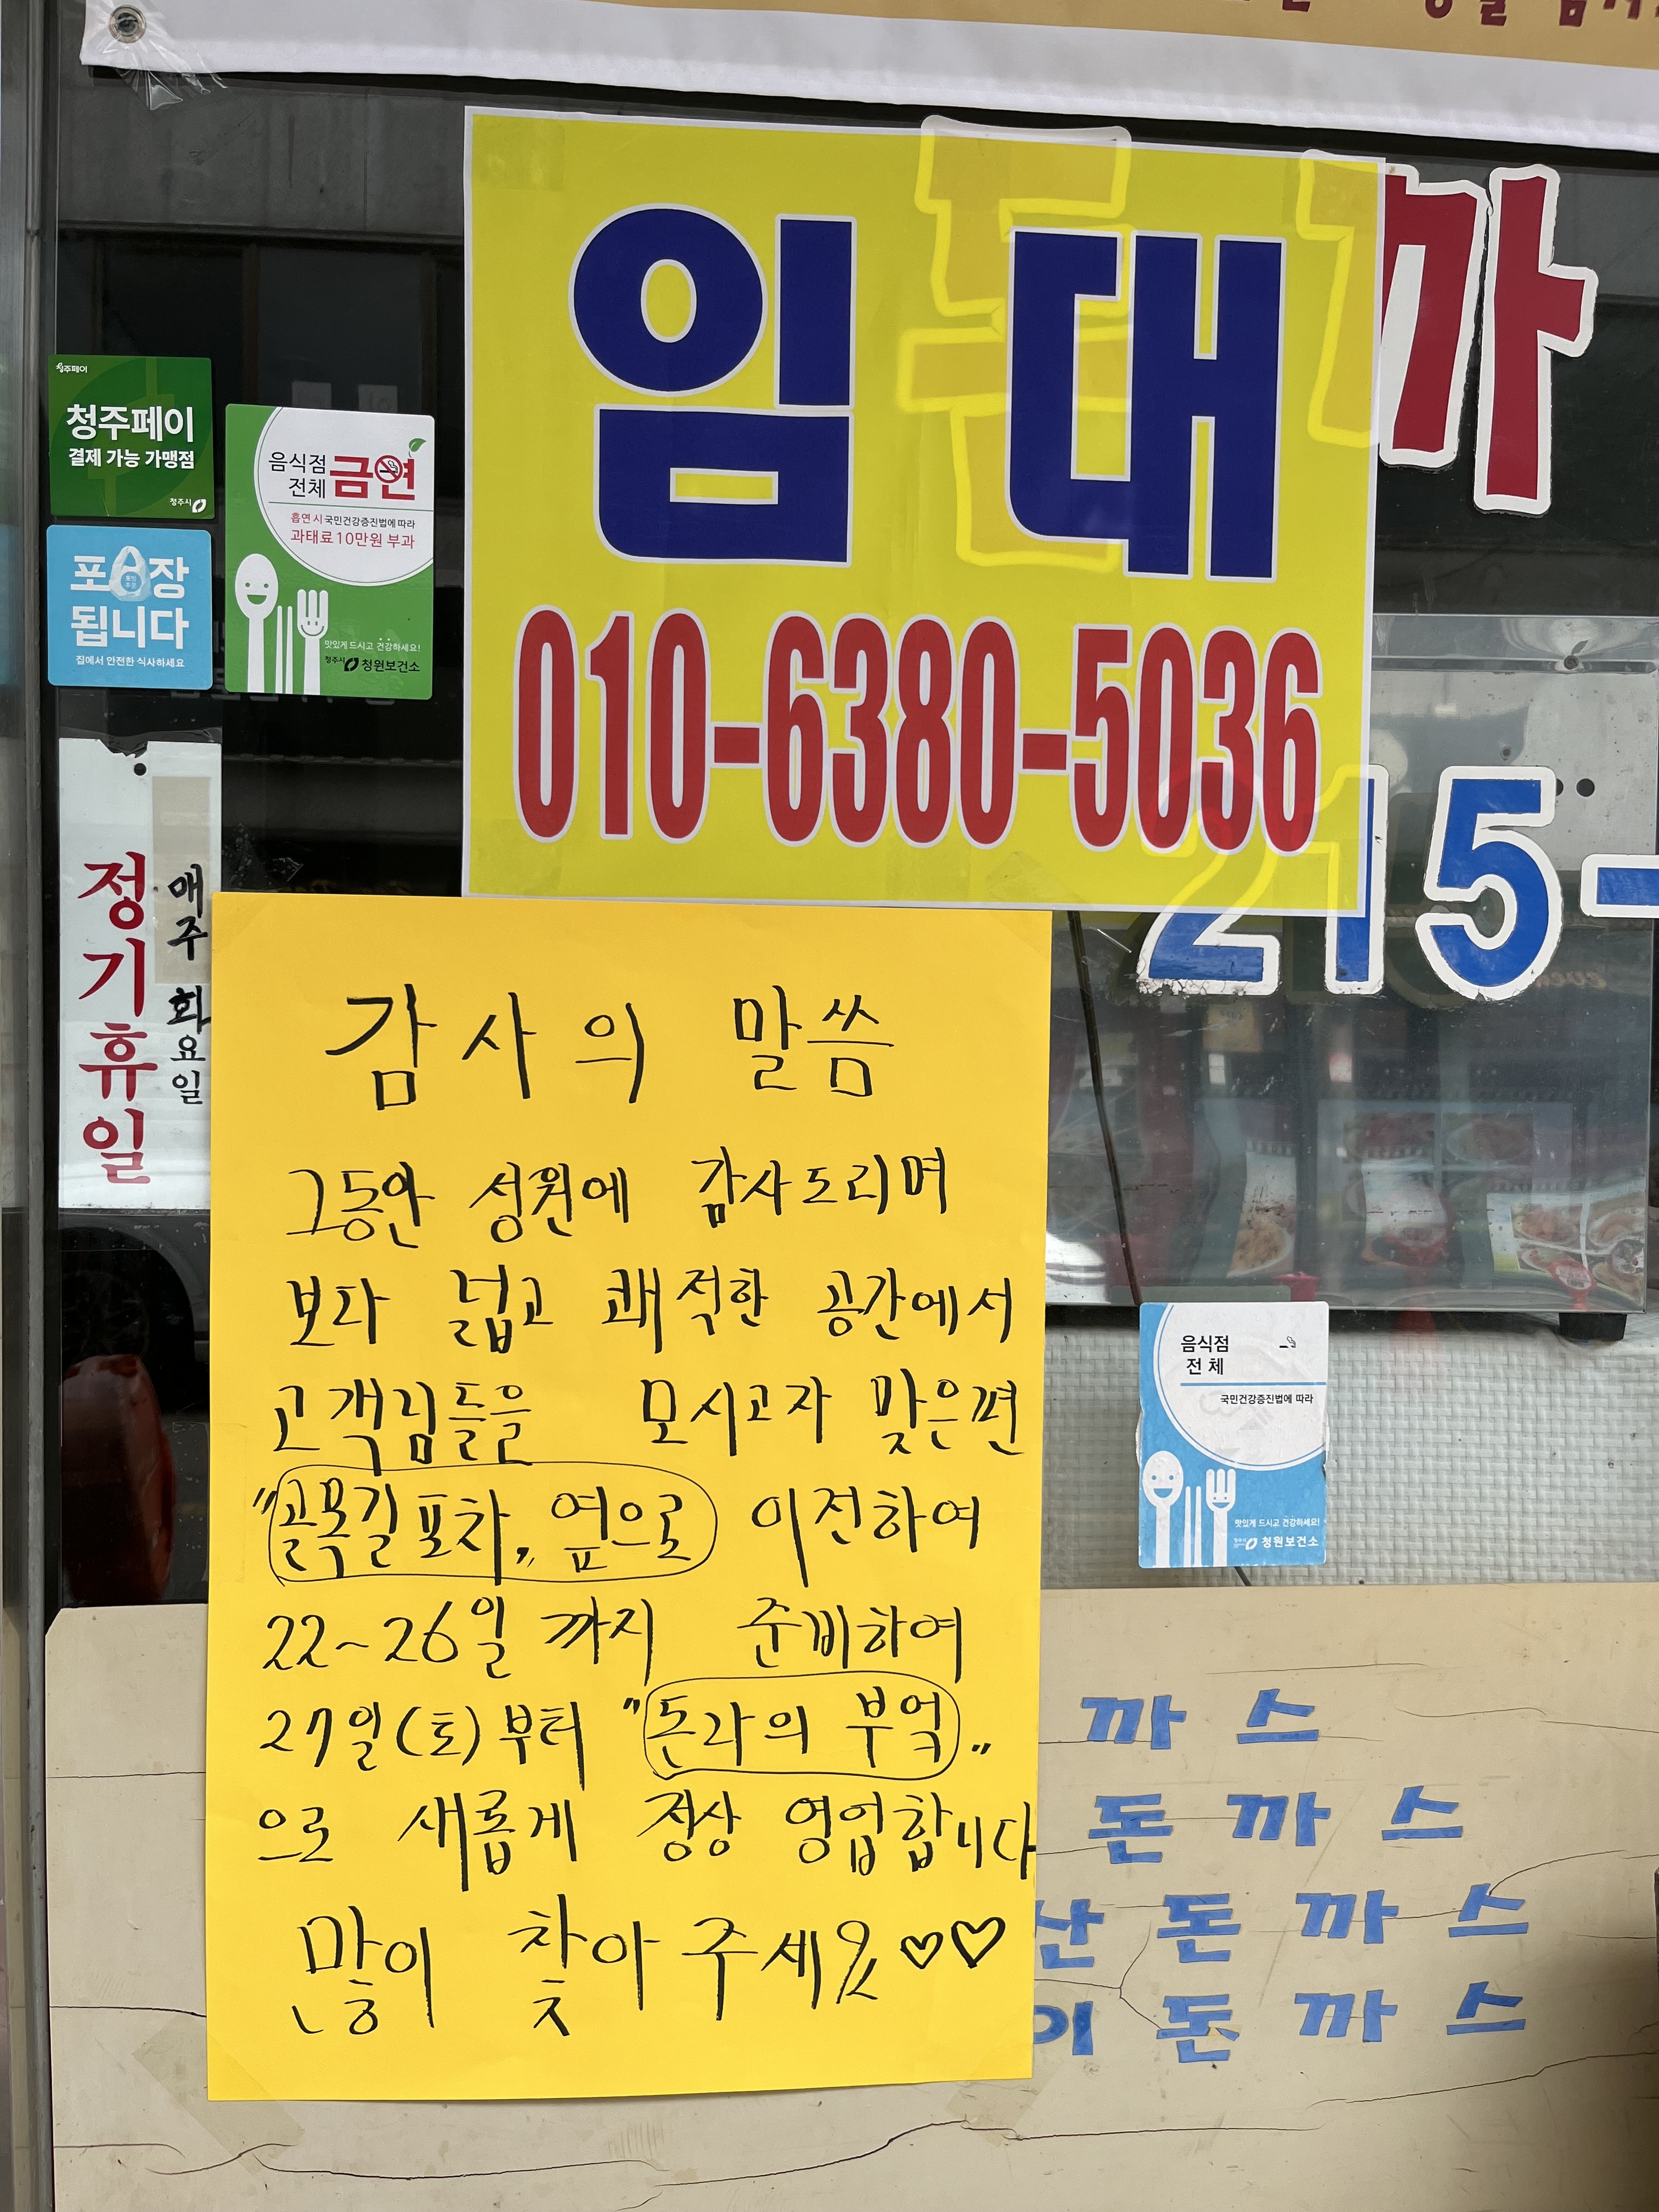 임대
010-6380-5036
까
215-
청주페이
청주페이
결제 가능 가맹점
청주시
음식점
전체 금연
흡연 시 국민건강증진법에 따라
과태료 10만원 부과
맛있게 드시고 건강하세요!
청주시 청원보건소
포장
됩니다
집에서 안전한 식사하세요
매주 화요일
정기휴일
감사의 말씀
그동안 성원에 감사드리며
보다 넓고 쾌적한 공간에서
고객님들을 모시고자 맞은편
"골목길 포차" 옆으로 이전하여
22~26일 까지 준비하여
27일(토)부터 "돈라의 부엌"
으로 새롭게 정상 영업합니다
많이 찾아 주세요♡♡
음식점
전체
국민건강증진법에 따라
맛있게 드시고 건강하세요!
청원보건소
까스
돈까스
산돈까스
이돈까스